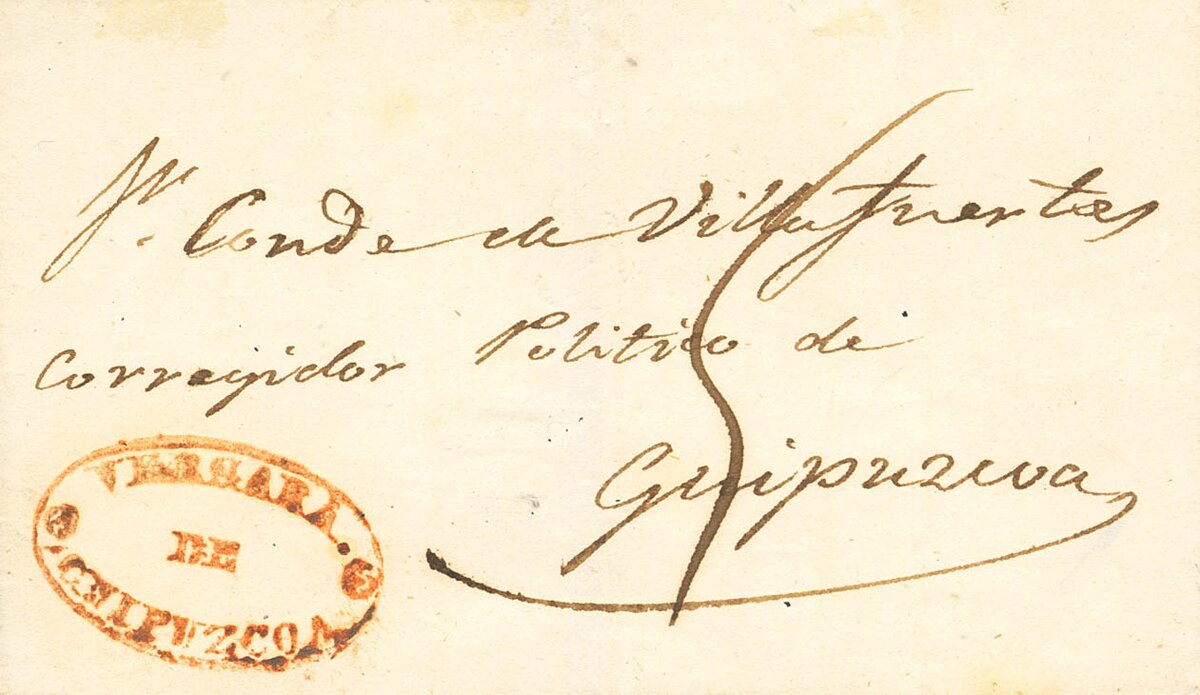 Sr. Conde de Villafuertes
Corregidor Politico de
Guipuzcoa
5
VERGARA.
DE
GUIPUZCOA